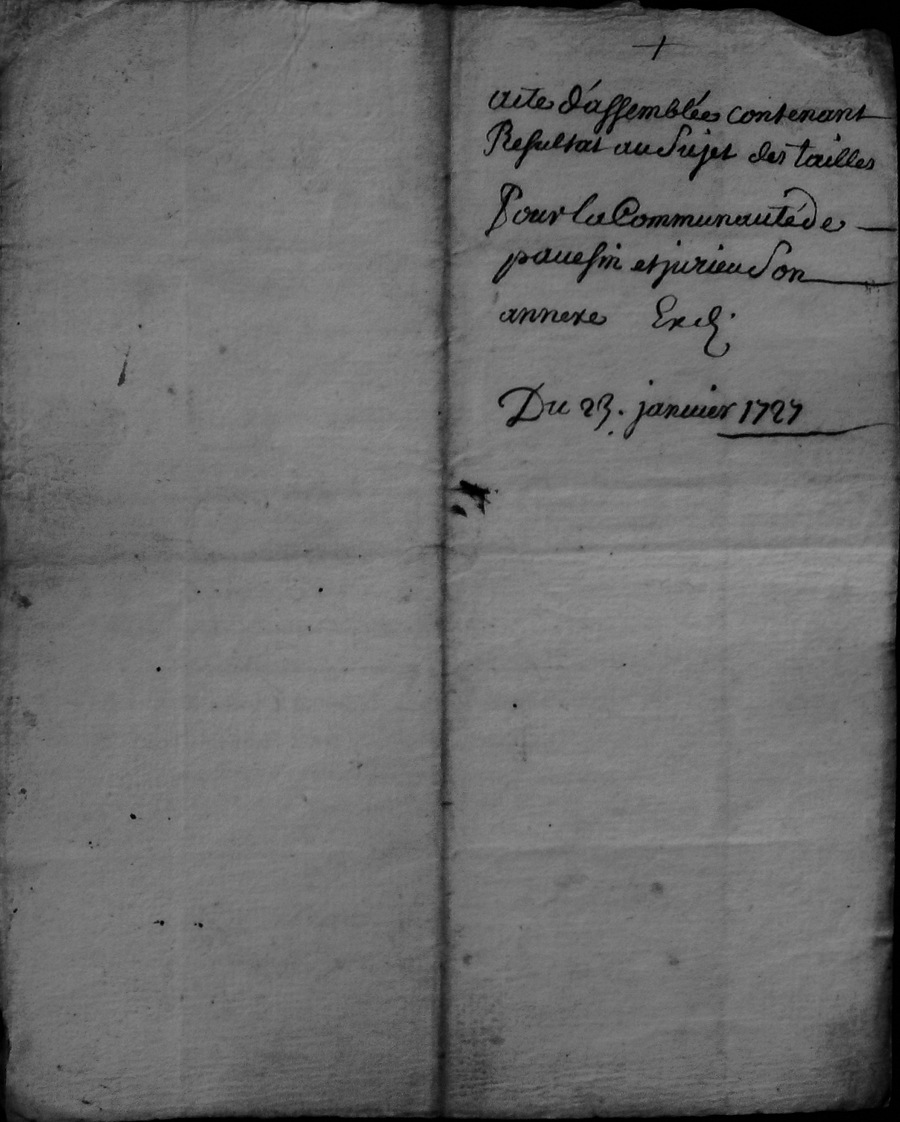 acte d'assemblée contenant
Resultat au Sujet des tailles
Pour la Communauté de
pauesin et jurieu Son
annexe
Du 23. januier 1727